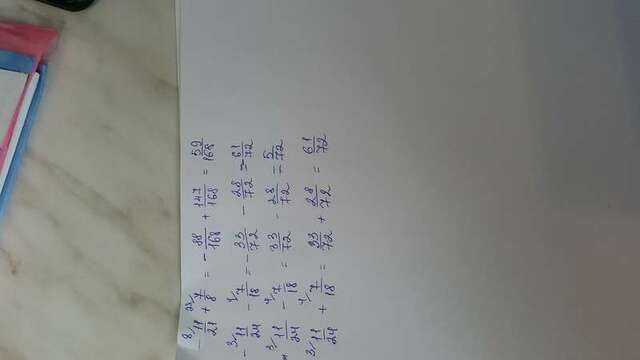 - 8/ 11/21 + 21/ 7/8 = - 88/168 + 147/168 = 59/168
- 3/ 11/24 - 4/ 7/18 = - 33/72 - 28/72 = 61/72
3/ 11/24 - 4/ 7/18 = 33/72 - 28/72 = 5/72
3/ 11/24 + 4/ 7/18 = 33/72 + 28/72 = 61/72